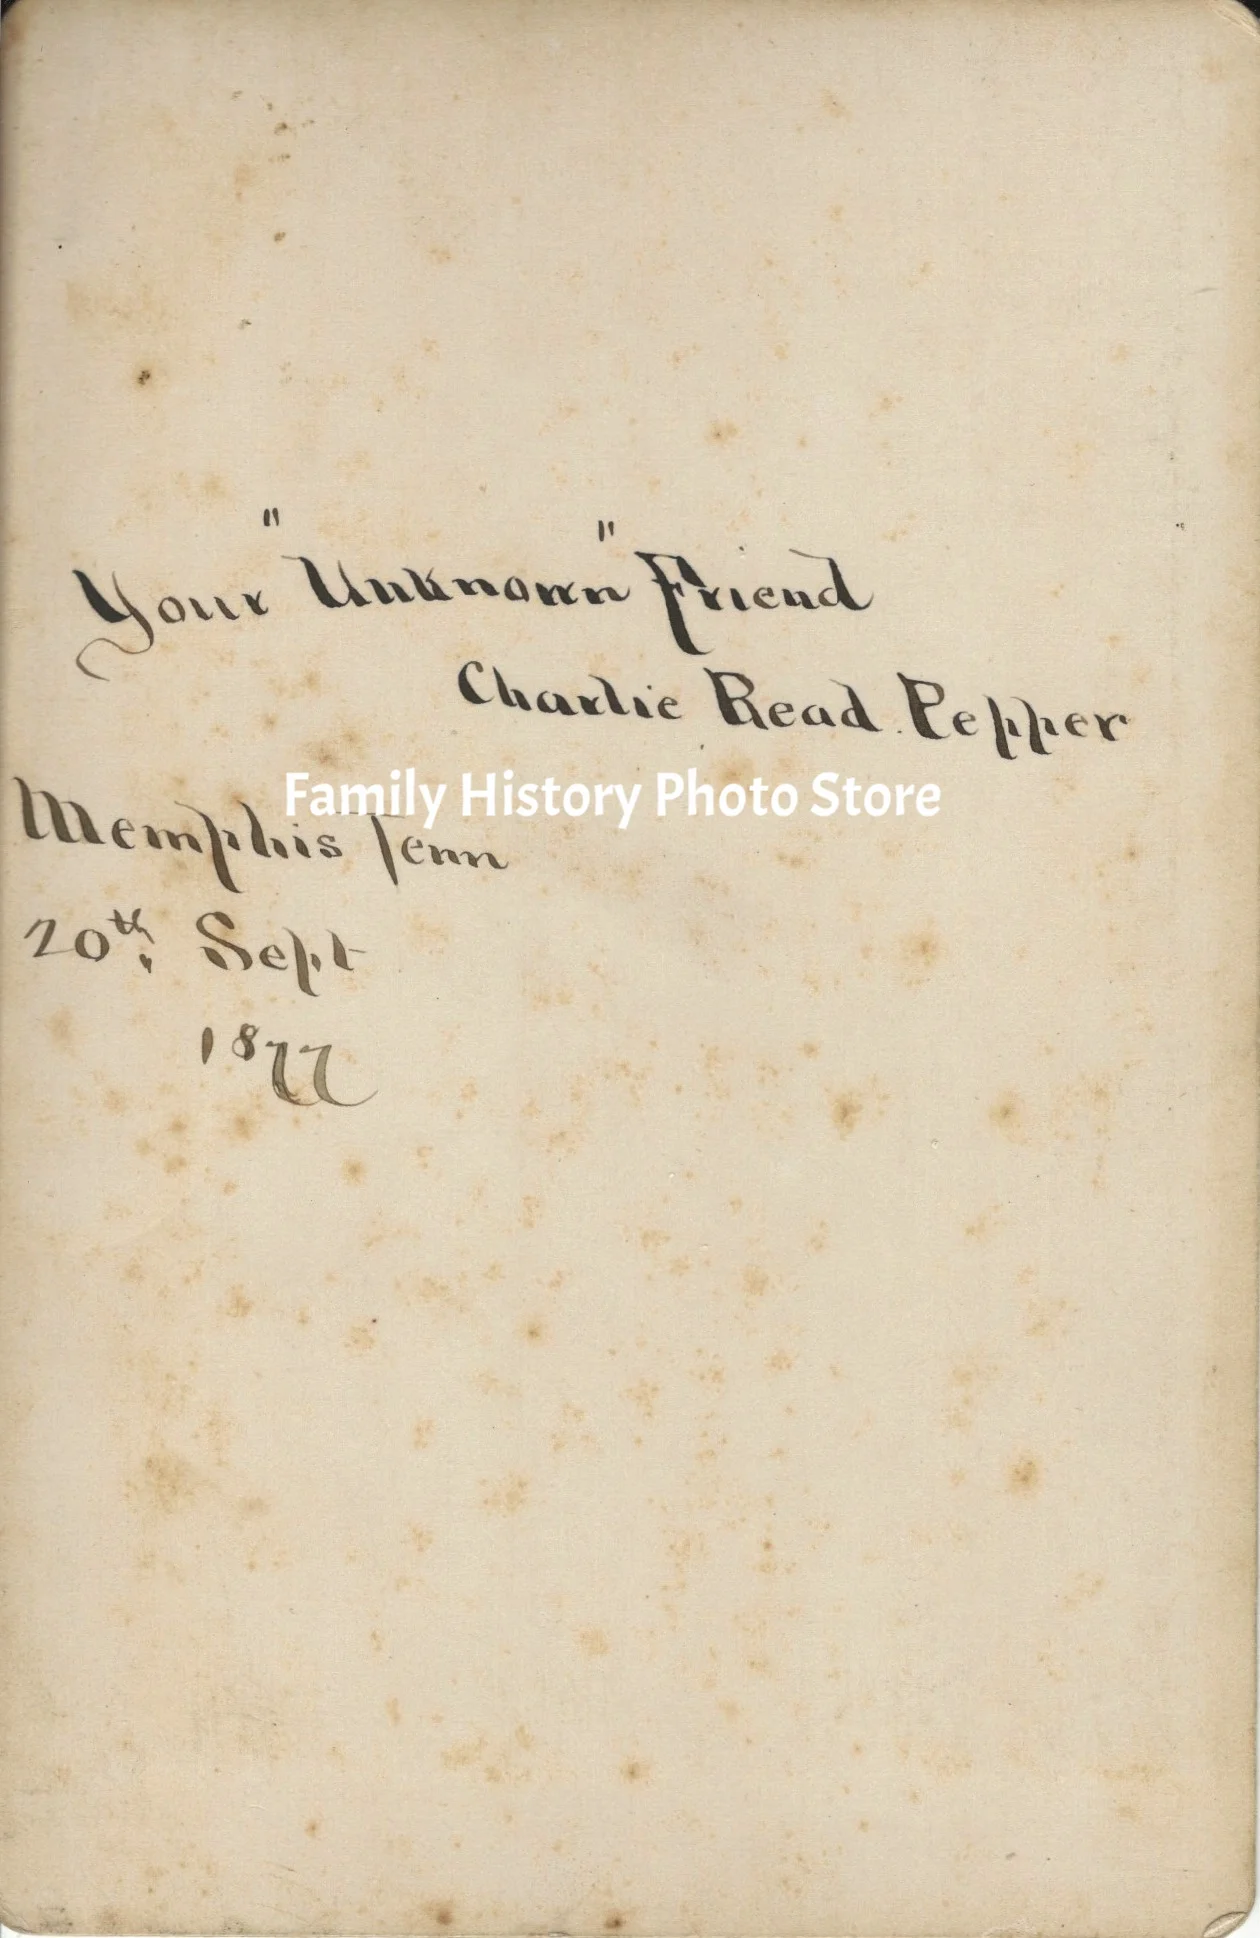 Your "Unknown" Friend
Charlie Read Pepper
Family History Photo Store
Memphis Tenn
20th, Sept
1877